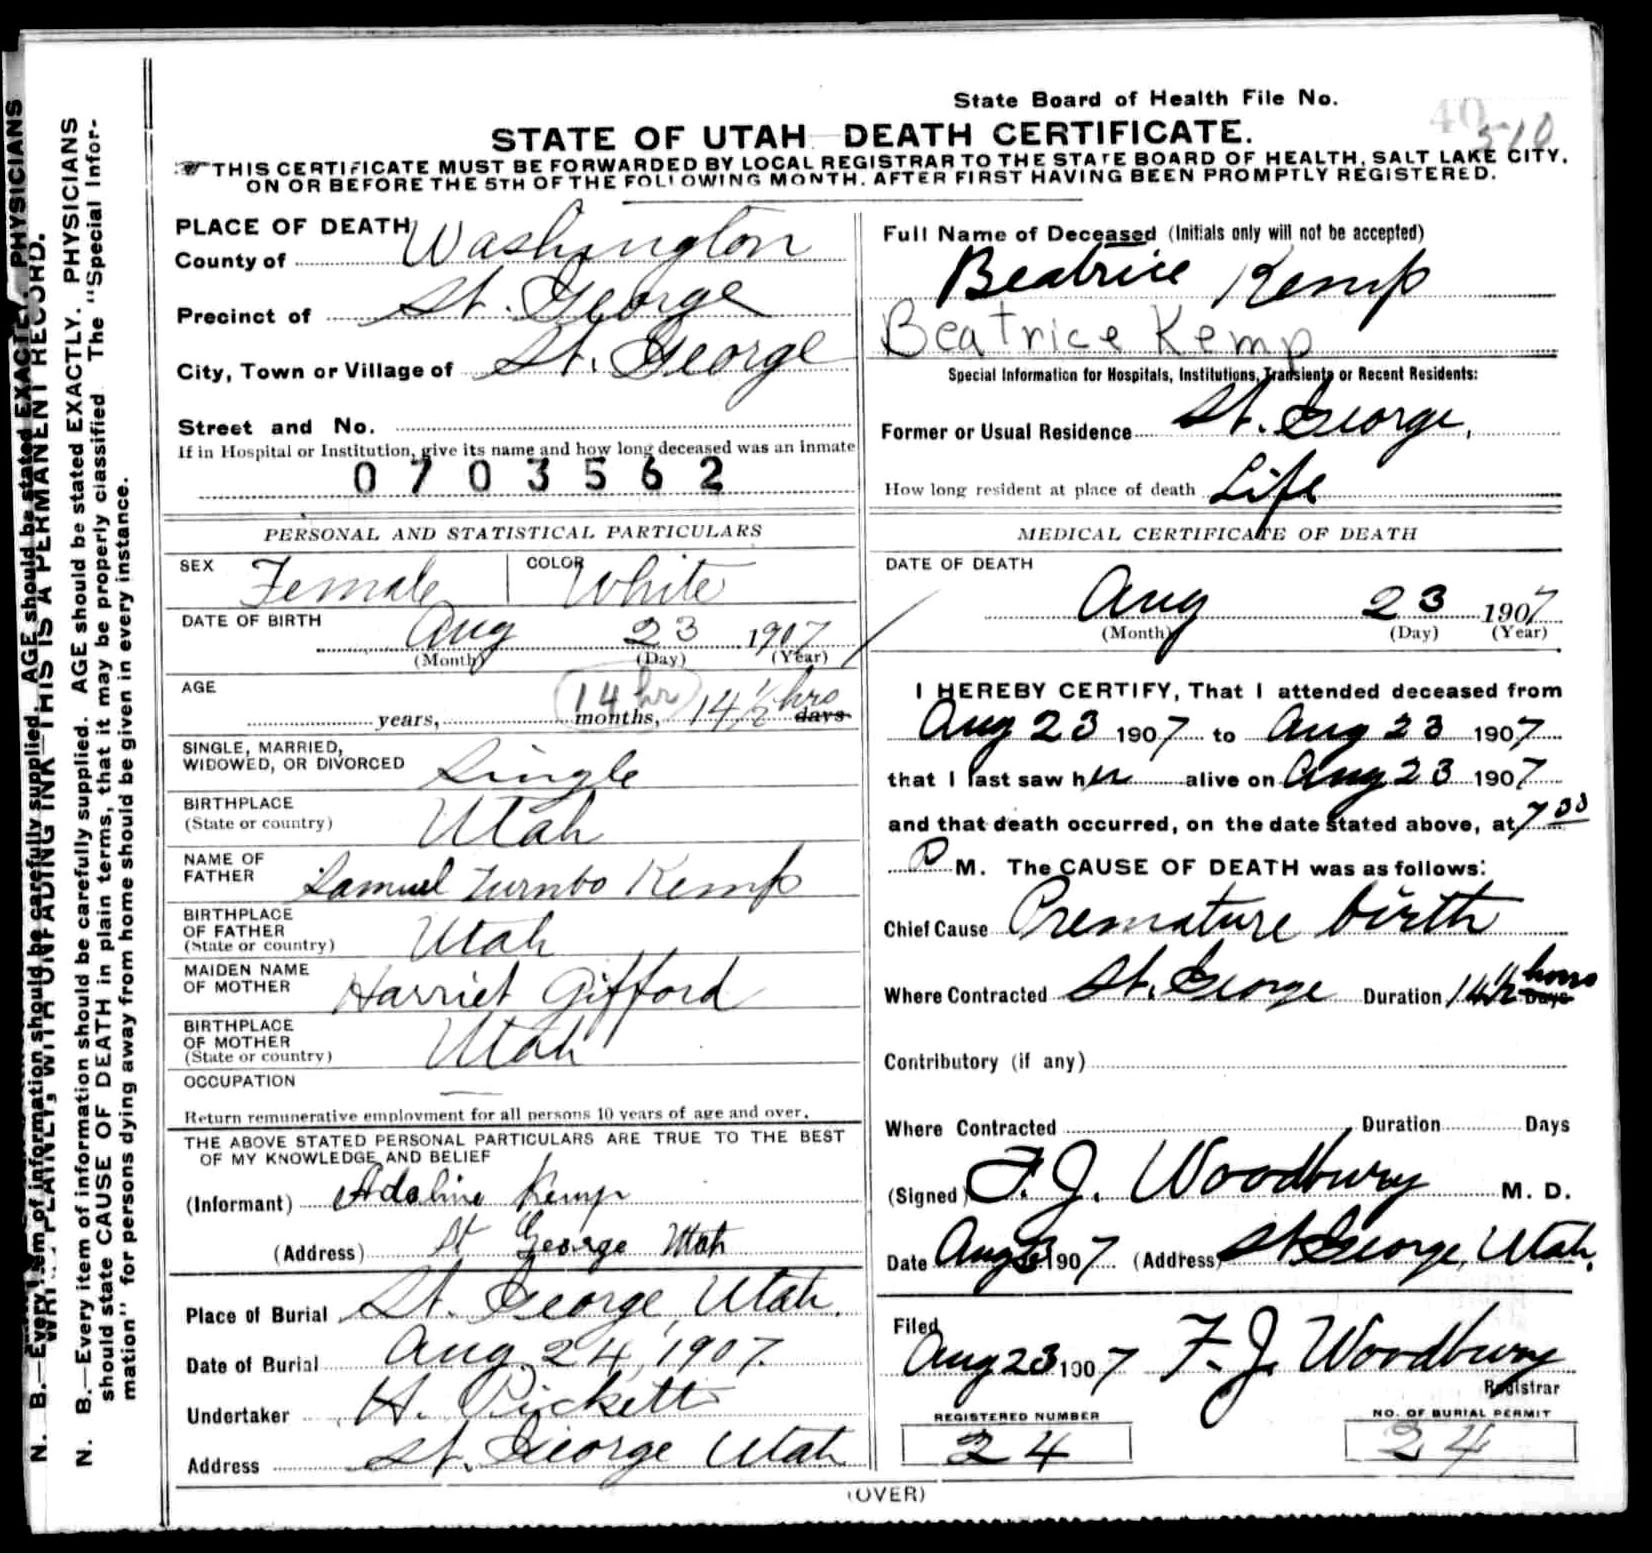 State Board of Health File No.
510
STATE OF UTAH DEATH CERTIFICATE.
THIS CERTIFICATE MUST BE FORWARDED BY LOCAL REGISTRAR TO THE STATE BOARD OF HEALTH, SALT LAKE CITY,
ON OR BEFORE THE 5TH OF THE FOLLOWING MONTH. AFTER FIRST HAVING BEEN PROMPTLY REGISTERED.
PLACE OF DEATH
County of Washington
Precinct of St. George
City, Town or Village of St. George
Street and No.
If in Hospital or Institution, give its name and how long deceased was an inmate
0703562
PERSONAL AND STATISTICAL PARTICULARS
SEX Female COLOR White
DATE OF BIRTH Aug 23 1907
(Month) (Day) (Year)
AGE years, 14 hr months, 14 1/2 hrs days
SINGLE, MARRIED,
WIDOWED, OR DIVORCED Single
BIRTHPLACE
(State or country) Utah
NAME OF
FATHER Samuel Turnbo Kemp
BIRTHPLACE
OF FATHER
(State or country) Utah
MAIDEN NAME
OF MOTHER Harriet Gifford
BIRTHPLACE
OF MOTHER
(State or country) Utah
OCCUPATION —
Return remunerative employment for all persons 10 years of age and over.
THE ABOVE STATED PERSONAL PARTICULARS ARE TRUE TO THE BEST
OF MY KNOWLEDGE AND BELIEF
(Informant) Adaline Kemp
(Address) St George Utah
Place of Burial St. George, Utah.
Date of Burial Aug. 24, 1907.
Undertaker H. Pickett
Address St. George Utah
Full Name of Deceased (Initials only will not be accepted)
Beatrice Kemp
Beatrice Kemp
Special Information for Hospitals, Institutions, Transients or Recent Residents:
Former or Usual Residence St. George,
How long resident at place of death Life
MEDICAL CERTIFICATE OF DEATH
DATE OF DEATH
Aug 23 1907
(Month) (Day) (Year)
I HEREBY CERTIFY, That I attended deceased from
Aug 23 1907 to Aug 23 1907
that I last saw her alive on Aug 23 1907
and that death occurred, on the date stated above, at 7 30
P M. The CAUSE OF DEATH was as follows:
Chief Cause Premature birth
Where Contracted St. George Duration 14 1/2 hours Days
Contributory (if any)
Where Contracted Duration Days
(Signed) F. J. Woodbury M. D.
Date Aug 23 1907 (Address) St George, Utah.
Filed
Aug 23 1907 F. J. Woodbury
Registrar
REGISTERED NUMBER
24
NO. OF BURIAL PERMIT
24
(OVER)
N. B.—Every item of information should be carefully supplied. AGE should be stated EXACTLY. PHYSICIANS
should state CAUSE OF DEATH in plain terms, that it may be properly classified. The "Special Infor-
mation" for persons dying away from home should be given in every instance.
WRITE PLAINLY, WITH UNFADING INK—THIS IS A PERMANENT RECORD.
N. B.—Every item of information should be carefully supplied. AGE should be stated EXACTLY. PHYSICIANS